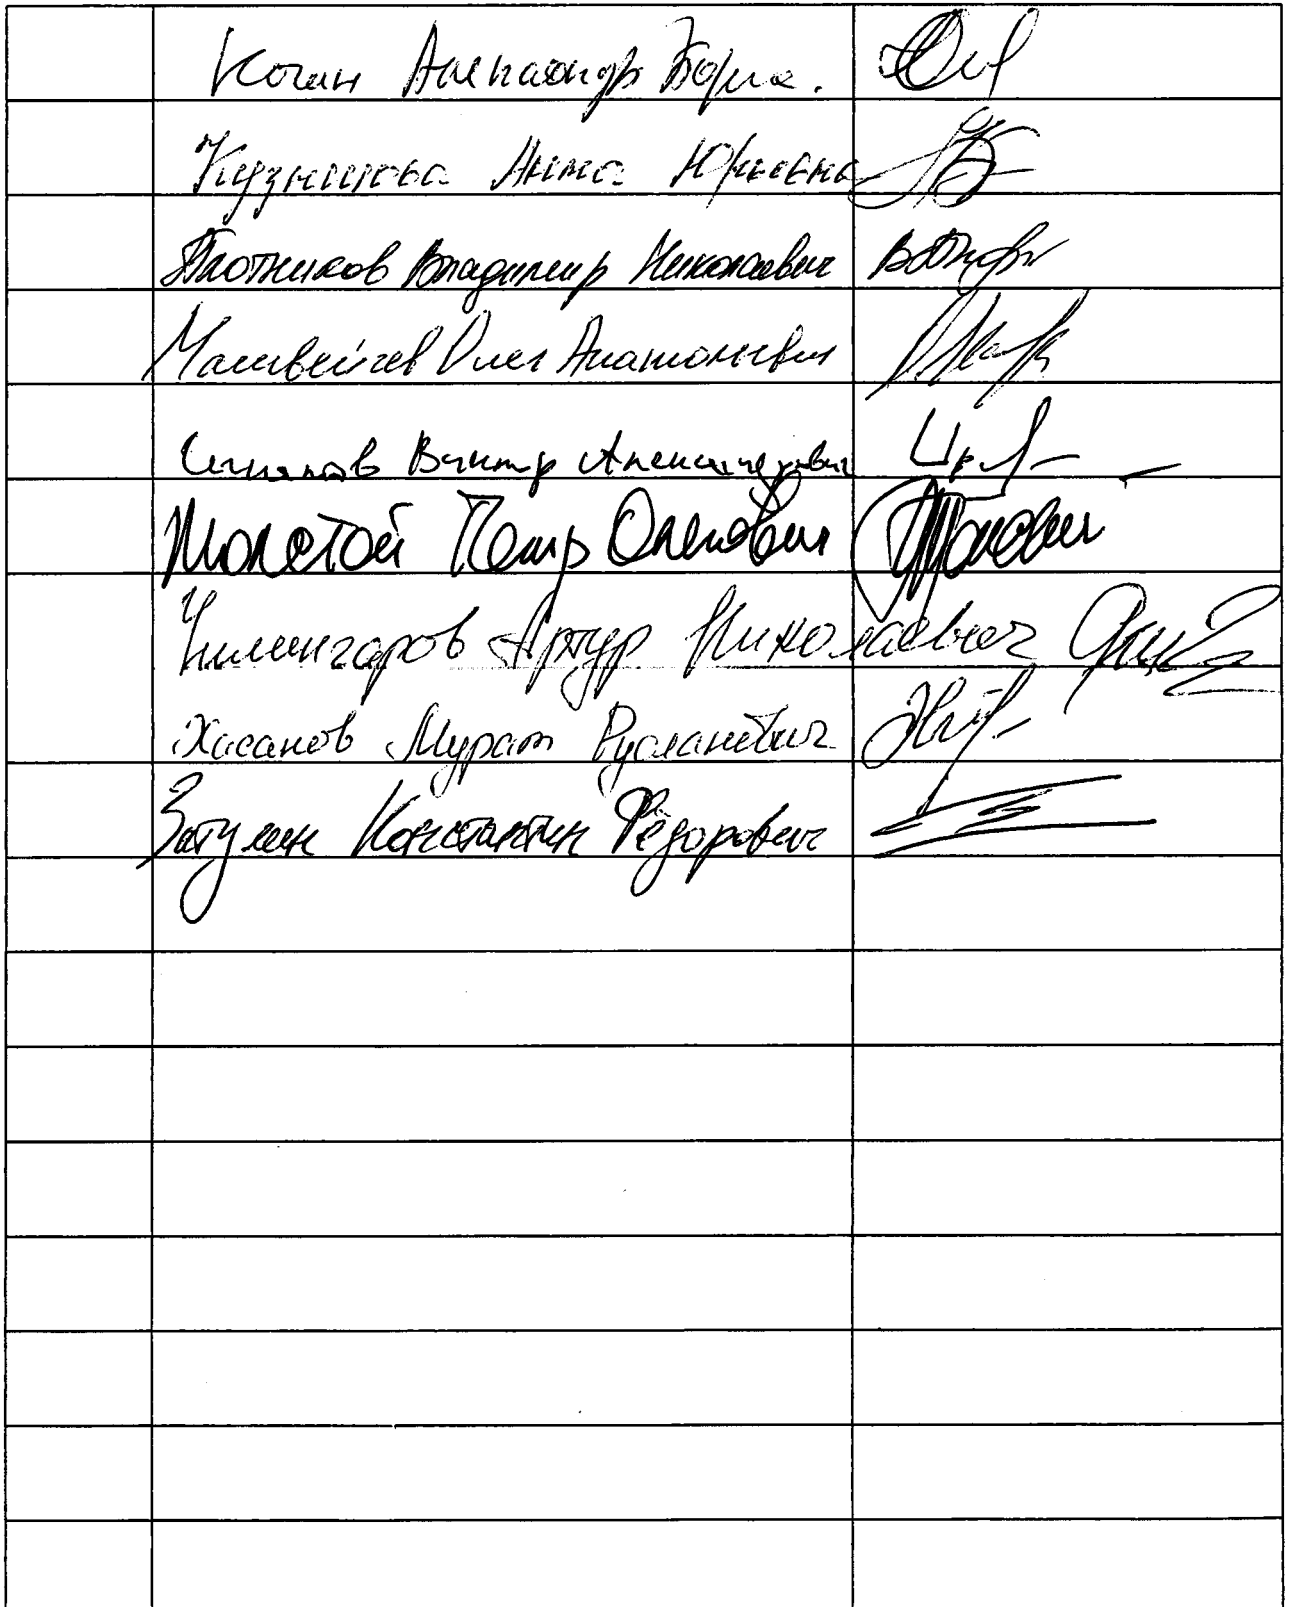 Коган Александр Борис.
Кузнецова Анна Юрьевна
Плотников Владимир Николаевич
Матвейчев Олег Анатольевич
Виктор Александрович
Толстой Петр Олегович
Чилингаров Артур Николаевич
Хасанов Мурат Русланович
Затулин Константин Фёдорович